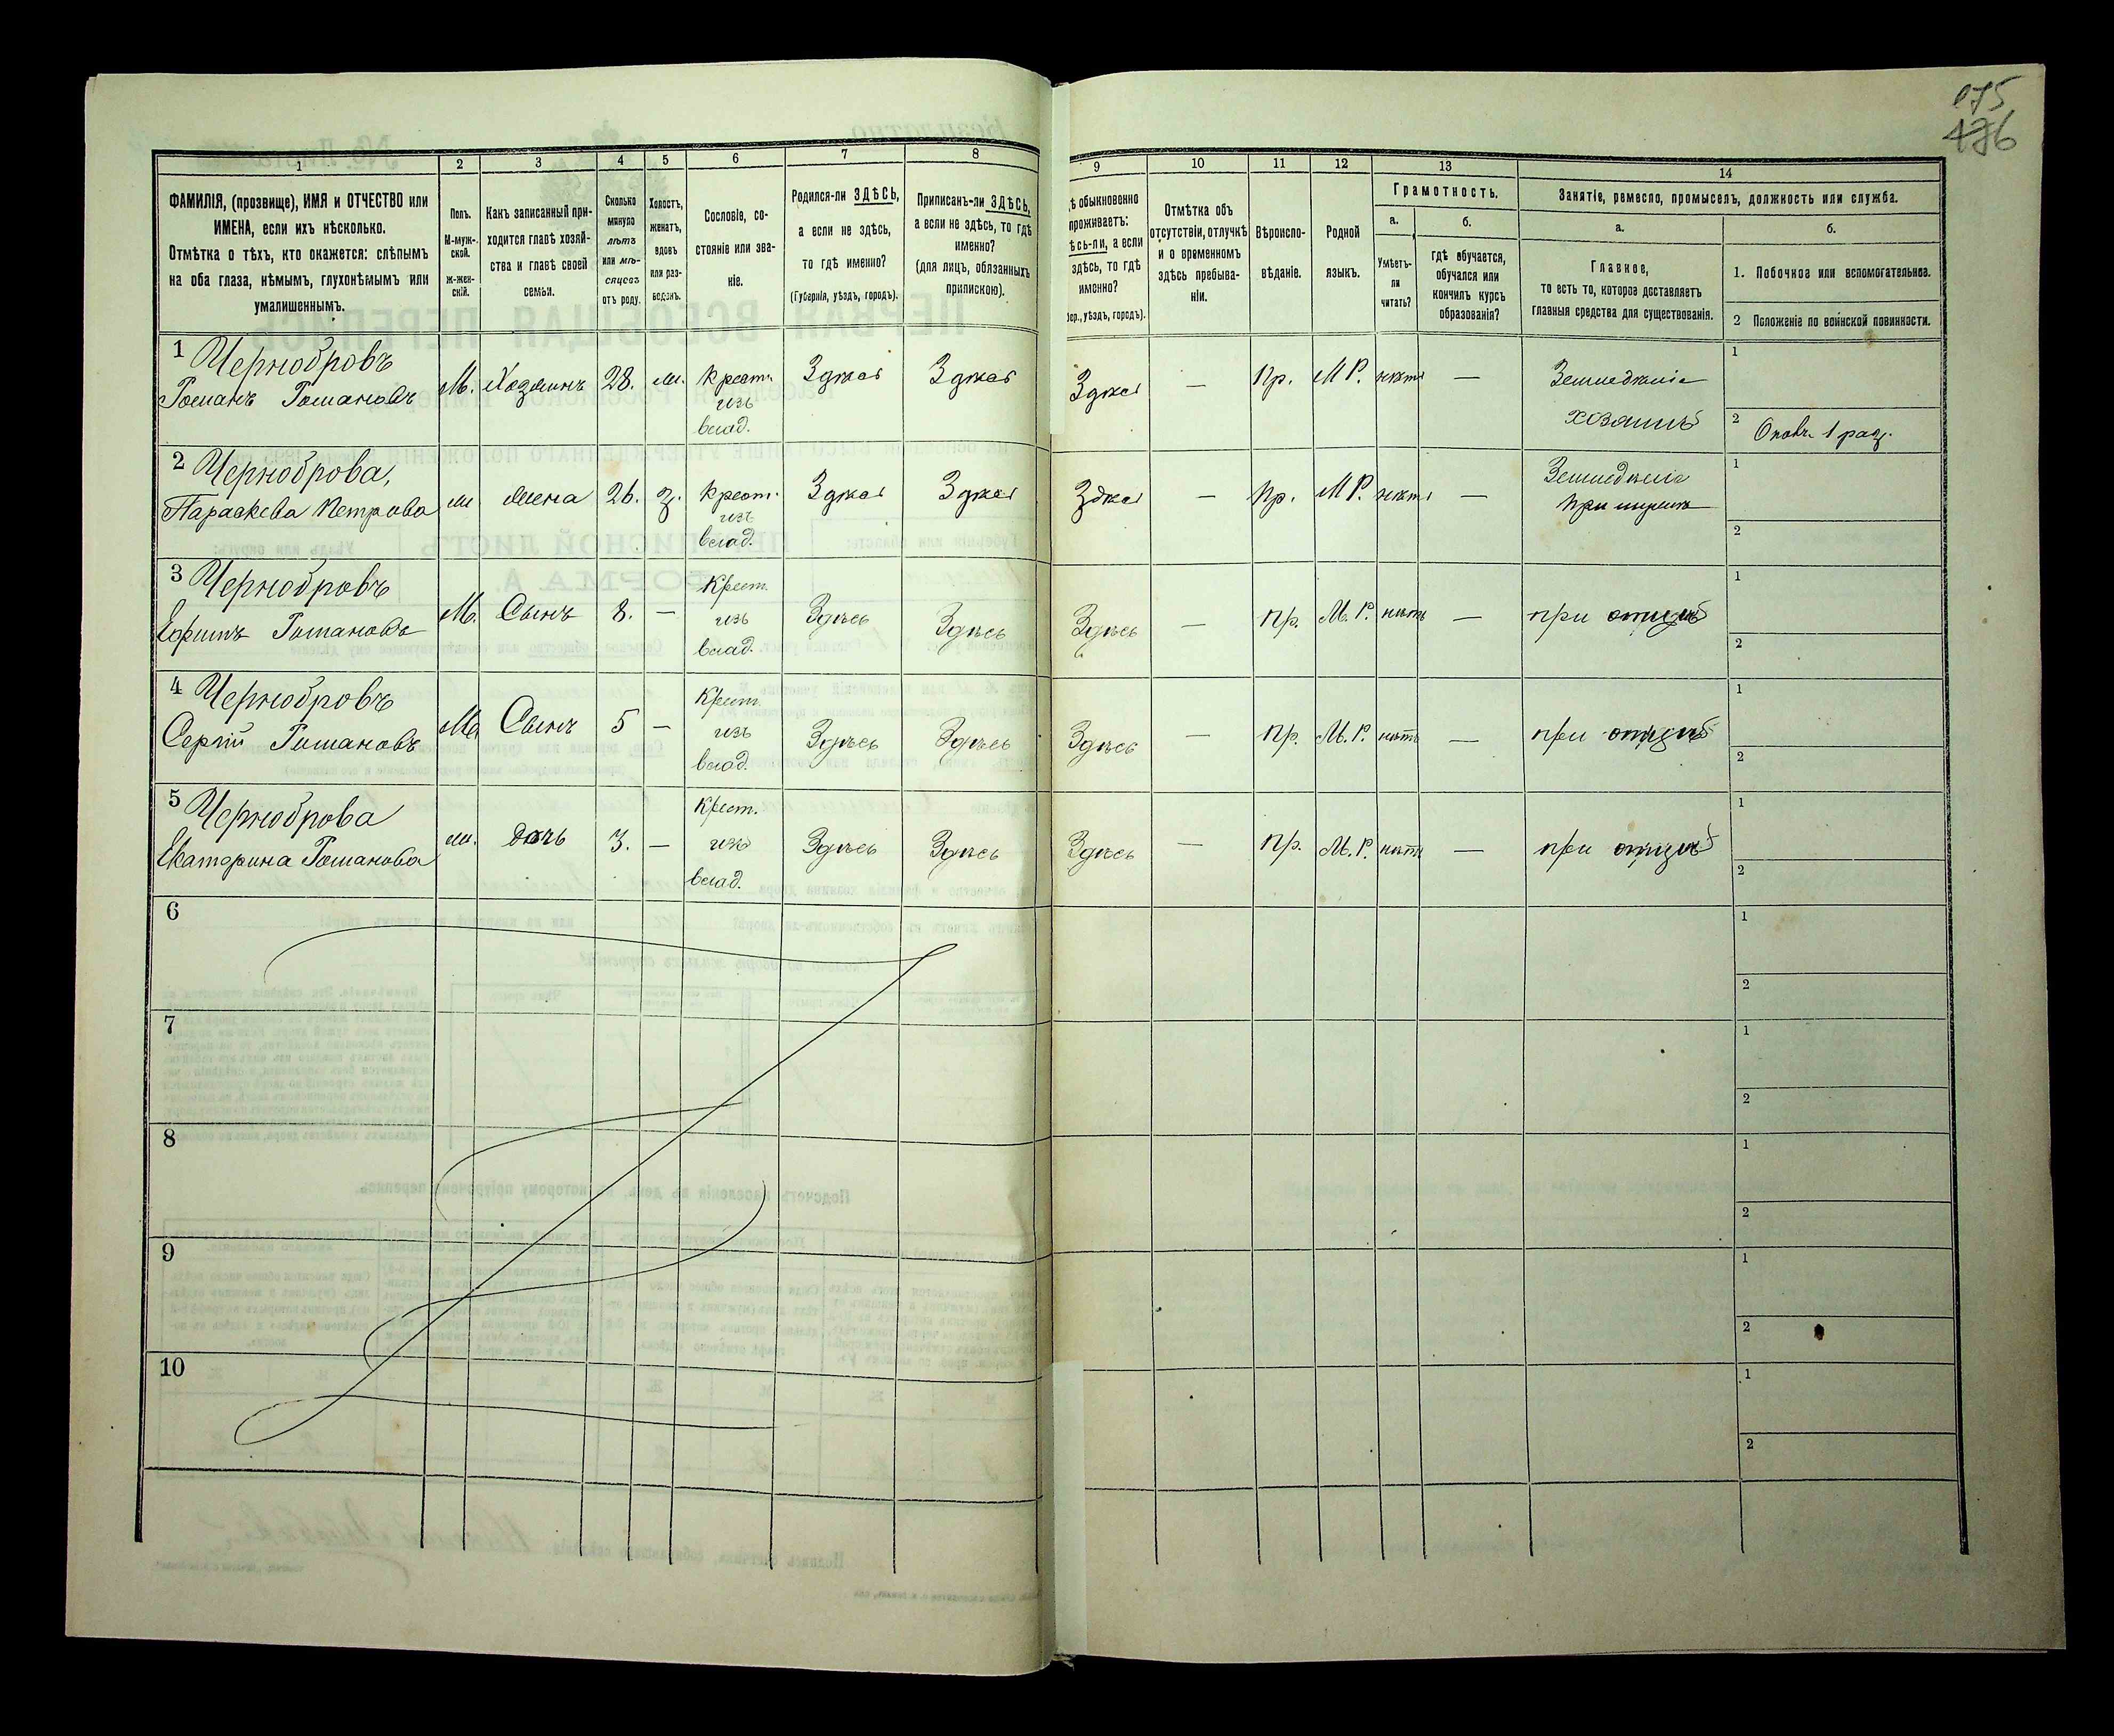 175
476
1
2
3
4
5
6
7
8
9
10
11
12
13
14
ФАМИЛІЯ, (прозвище), ИМЯ и ОТЧЕСТВО или
ИМЕНА, если ихъ нѣсколько.
Отмѣтка о тѣхъ, кто окажется: слѣпымъ
на оба глаза, нѣмымъ, глухонѣмымъ или
умалишеннымъ.
Полъ.
М-муж-
ской.
Ж-жен-
скій.
Какъ записанный при-
ходится главѣ хозяй-
ства и главѣ своей
семьи.
Сколько
минуло
лѣтъ
или мѣ-
сяцевъ
отъ роду.
Холостъ,
женатъ,
вдовъ
или раз-
веденъ.
Сословіе, со-
стояніе или зва-
ніе.
Родился-ли ЗДѢСЬ,
а если не здѣсь,
то гдѣ именно?
(Губернія, уѣздъ, городъ).
Приписанъ-ли ЗДѢСЬ,
а если не здѣсь, то гдѣ
именно?
(для лицъ, обязанныхъ
припискою).
ѣ обыкновенно
проживаетъ:
ѣсь-ли, а если
здѣсь, то гдѣ
именно?
бер., уѣздъ, городъ).
Отмѣтка объ
отсутствіи, отлучкѣ
и о временномъ
здѣсь пребыва-
ніи.
Вѣроиспо-
вѣданіе.
Родной
языкъ.
Грамотность.
а.
б.
Умѣетъ-
ли
читать?
гдѣ обучается,
обучался или
кончилъ курсъ
образованія?
Занятіе, ремесло, промыселъ, должность или служба.
а.
б.
Главное,
то есть то, которое доставляетъ
главныя средства для существованія.
1. Побочное или вспомогательное.
2 Положеніе по воинской повинности.
1 Чернобровъ
Романъ Романовъ
М. Хозяинъ 28. ж. Крест.
изъ
влад.
Здѣсь Здѣсь Здѣсь — Пр. М Р. нѣтъ —
Земледѣліе
хозяинъ
1
2 Ополч. 1 раз.
2 Черноброва,
Параскева Петрова
ж жена 26. з. Крест.
изъ
влад.
Здѣсь Здѣсь Здѣсь — Пр. М Р. нѣтъ —
Земледѣліе
при мужѣ
1
2
3 Чернобровъ
Ефимъ Романовъ
М. Сынъ 8. — Крест.
изъ
влад.
Здѣсь Здѣсь Здѣсь — пр. М. Р. нѣтъ — при отцѣ
1
2
4 Чернобровъ
Сергій Романовъ
М. Сынъ 5 — Крест.
изъ
влад.
Здѣсь Здѣсь Здѣсь — пр. М. Р. нѣтъ — при отцѣ
1
2
5 Черноброва
Екатерина Романова
ж. дочь 3. — Крест.
изъ
влад.
Здѣсь Здѣсь Здѣсь — пр. М. Р. нѣтъ — при отцѣ
1
2
6
1
2
7
1
2
8
1
2
9
1
2
10
1
2